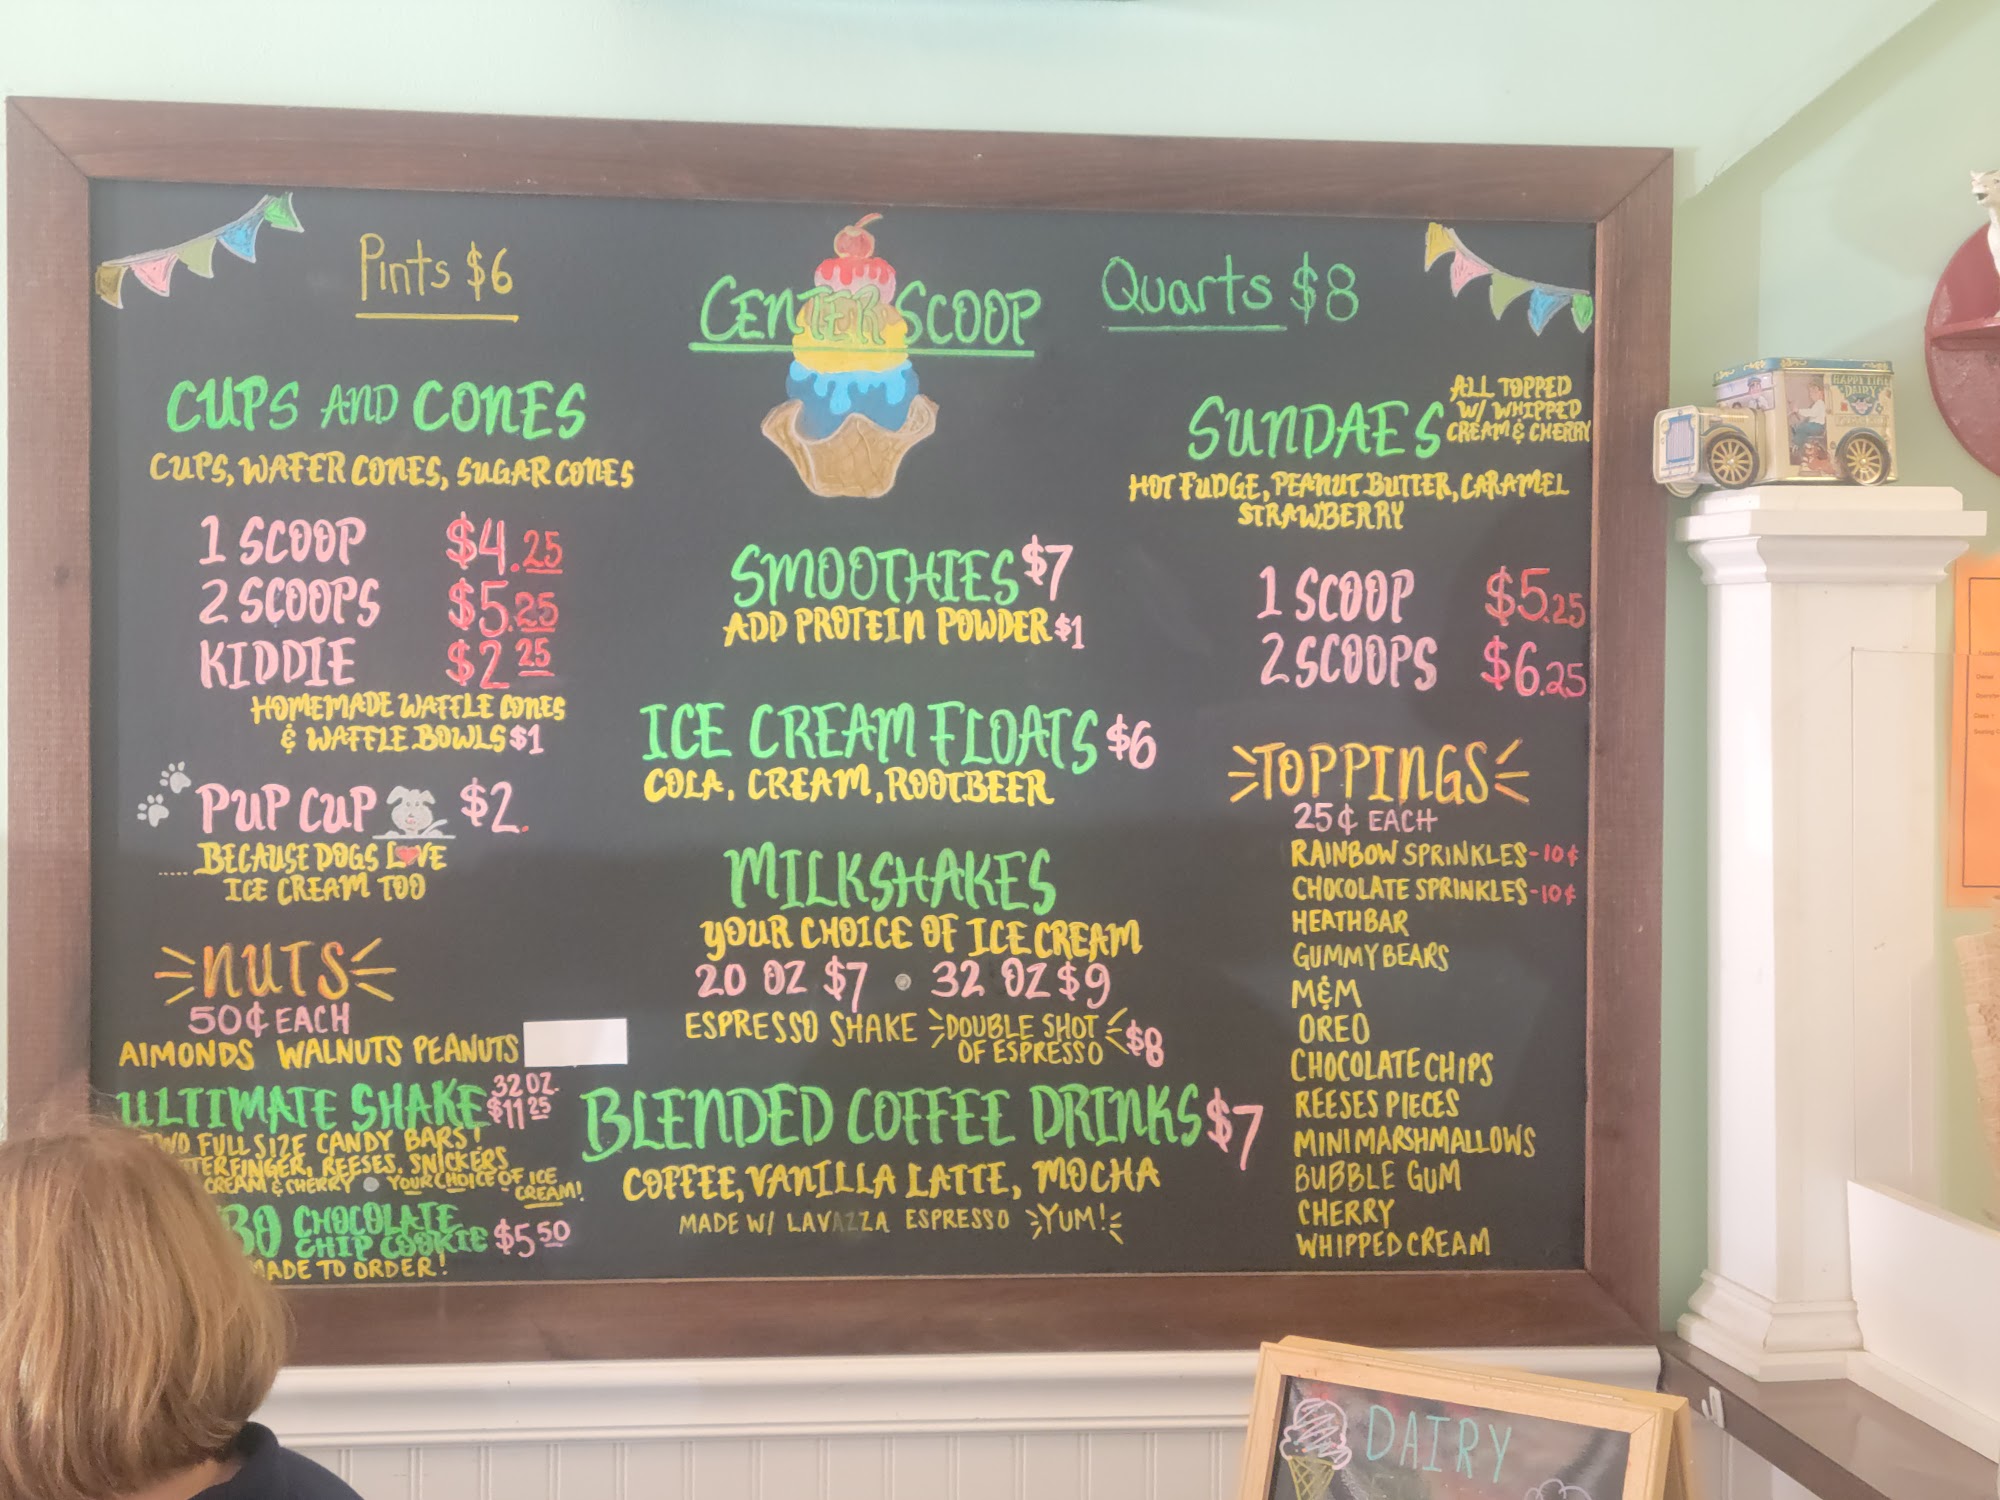 Pints $6
CENTER SCOOP
Quarts $8
CUPS AND CONES
CUPS, WAFER CONES, SUGAR CONES
1 SCOOP $4.25
2 SCOOPS $5.25
KIDDIE $2 25
HOMEMADE WAFFLE CONES
& WAFFLE BOWLS $1
PUP CUP $2.
..... BECAUSE DOGS LOVE
ICE CREAM TOO
NUTS
50¢ EACH
ALMONDS WALNUTS PEANUTS
ULTIMATE SHAKE 32 OZ. $11 25
TWO FULL SIZE CANDY BARS!
REESES, SNICKERS
CREAM & CHERRY • YOUR CHOICE OF ICE
CREAM!
CHOCOLATE
CHIP COOKIE $5 50
MADE TO ORDER!
SMOOTHIES $7
ADD PROTEIN POWDER $1
ICE CREAM FLOATS $6
COLA, CREAM, ROOTBEER
MILKSHAKES
YOUR CHOICE OF ICE CREAM
20 OZ $7 • 32 OZ $9
ESPRESSO SHAKE DOUBLE SHOT
OF ESPRESSO $8
BLENDED COFFEE DRINKS $7
COFFEE, VANILLA LATTE, MOCHA
MADE W/ LAVAZZA ESPRESSO YUM!
SUNDAES
ALL TOPPED
W/ WHIPPED
CREAM & CHERRY
HOT FUDGE, PEANUT BUTTER, CARAMEL
STRAWBERRY
1 SCOOP $5.25
2 SCOOPS $6.25
TOPPINGS
25¢ EACH
RAINBOW SPRINKLES-10¢
CHOCOLATE SPRINKLES-10¢
HEATHBAR
GUMMY BEARS
M&M
OREO
CHOCOLATE CHIPS
REESES PIECES
MINI MARSHMALLOWS
BUBBLE GUM
CHERRY
WHIPPED CREAM
HAPPY TIME
DAIRY
DAIRY